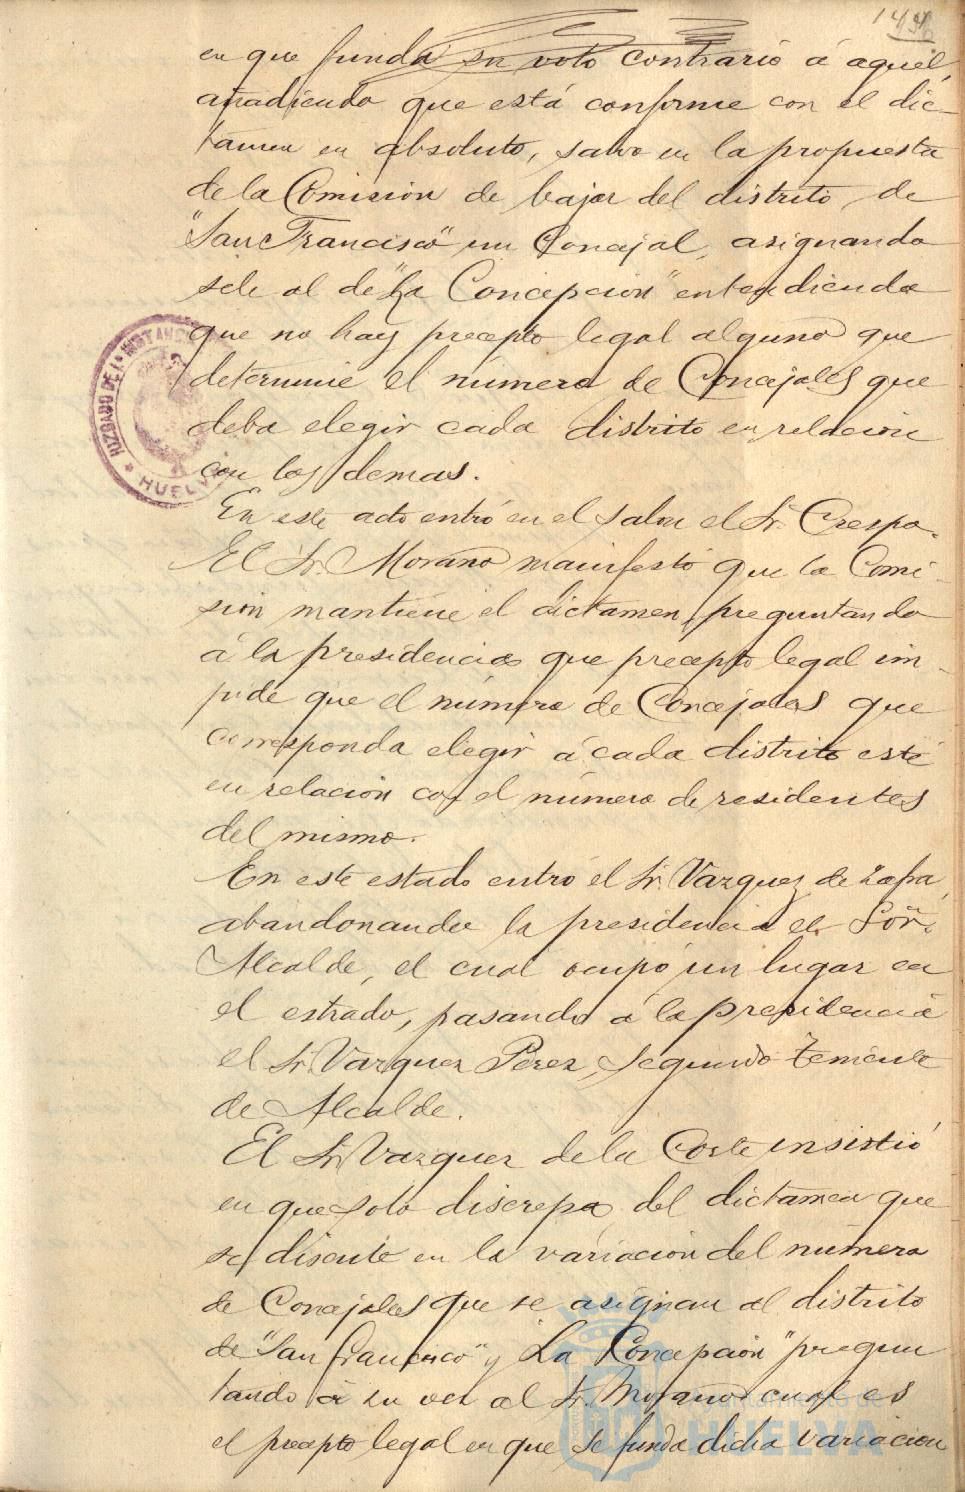 en que funda su voto contrario á aquel,
añadiendo que está conforme con el dic-
tamen en absoluto, salvo en la propuesta
de la Comisión de bajar del distrito de
"San Francisco" un Concejal, asignando
sele al de "La Concepcion" entendiendo
que no hay precepto legal alguno que
determine el número de Concejales que
deba elegir cada distrito en relacion
con los demas.
En este acto entró en el salon el Sr. Crespo.
El Sr. Morano manifestó que la Comi-
sion mantiene el dictamen, preguntando
á la presidencia que precepto legal im-
pide que el número de Concejales que
corresponda elegir á cada distrito esté
en relacion con el número de residentes
del mismo.
En este estado entró el Sr. Vazquez de Zafra,
abandonando la presidencia el Señ.
Alcalde, el cual ocupó un lugar en
el estrado, pasando á la presidencia
el Sr. Vazquez Perez, segundo teniente
de Alcalde.
El Sr. Vazquez de la Corte insistió
en que solo discrepa del dictamen que
se discute en la variacion del número
de Concejales que se asignan al distrito
de "San Francisco" y "La Concepción" pregun
tando á su vez al Sr. Morano cual es
el precepto legal en que se funda dicha variacion
JUZGADO DE 1ª INSTANCIA
* HUELVA
Ayuntamiento de
HUELVA